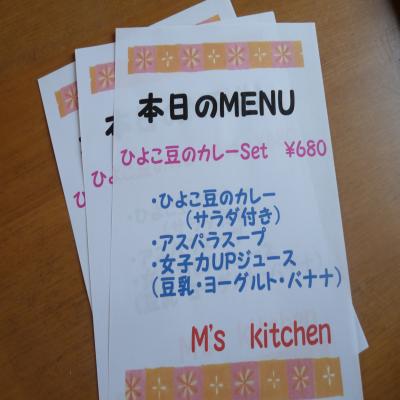 本日のMENU
ひよこ豆のカレーSet ¥680
・ひよこ豆のカレー
(サラダ付き)
・アスパラスープ
・女子力UPジュース
(豆乳・ヨーグルト・バナナ)
M's kitchen